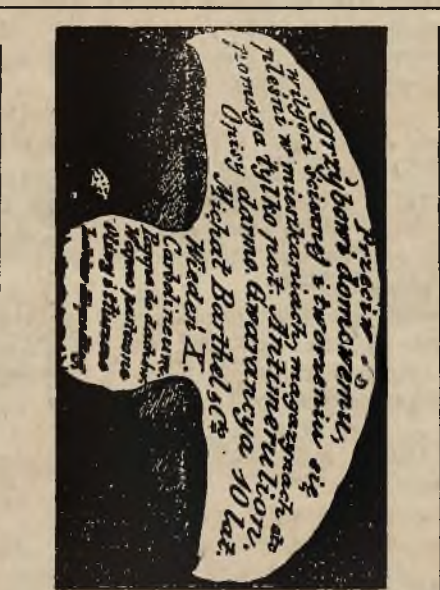 Przeciw
grzybowi domowemu,
wilgoci ścian i tworzeniu się
pleśni w mieszkaniach, magazynach etc
pomaga tylko pat. Antimerulion.
Opisy darmo. Gwarancya 10 lat.
Michał Barthel & Co
Wiedeń X.
Carbolineum
Pappa do dachów